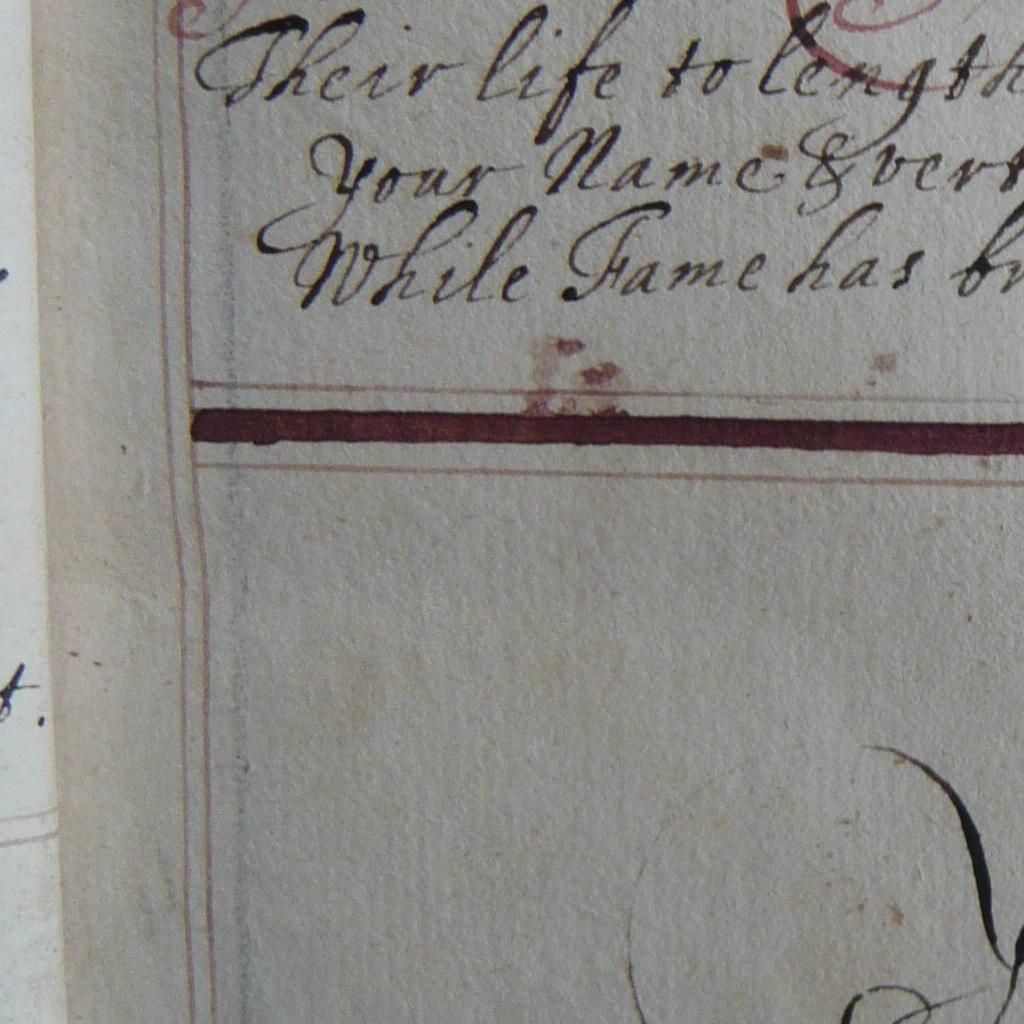 Their life to length
Your Name & vert
While Fame has br
t.